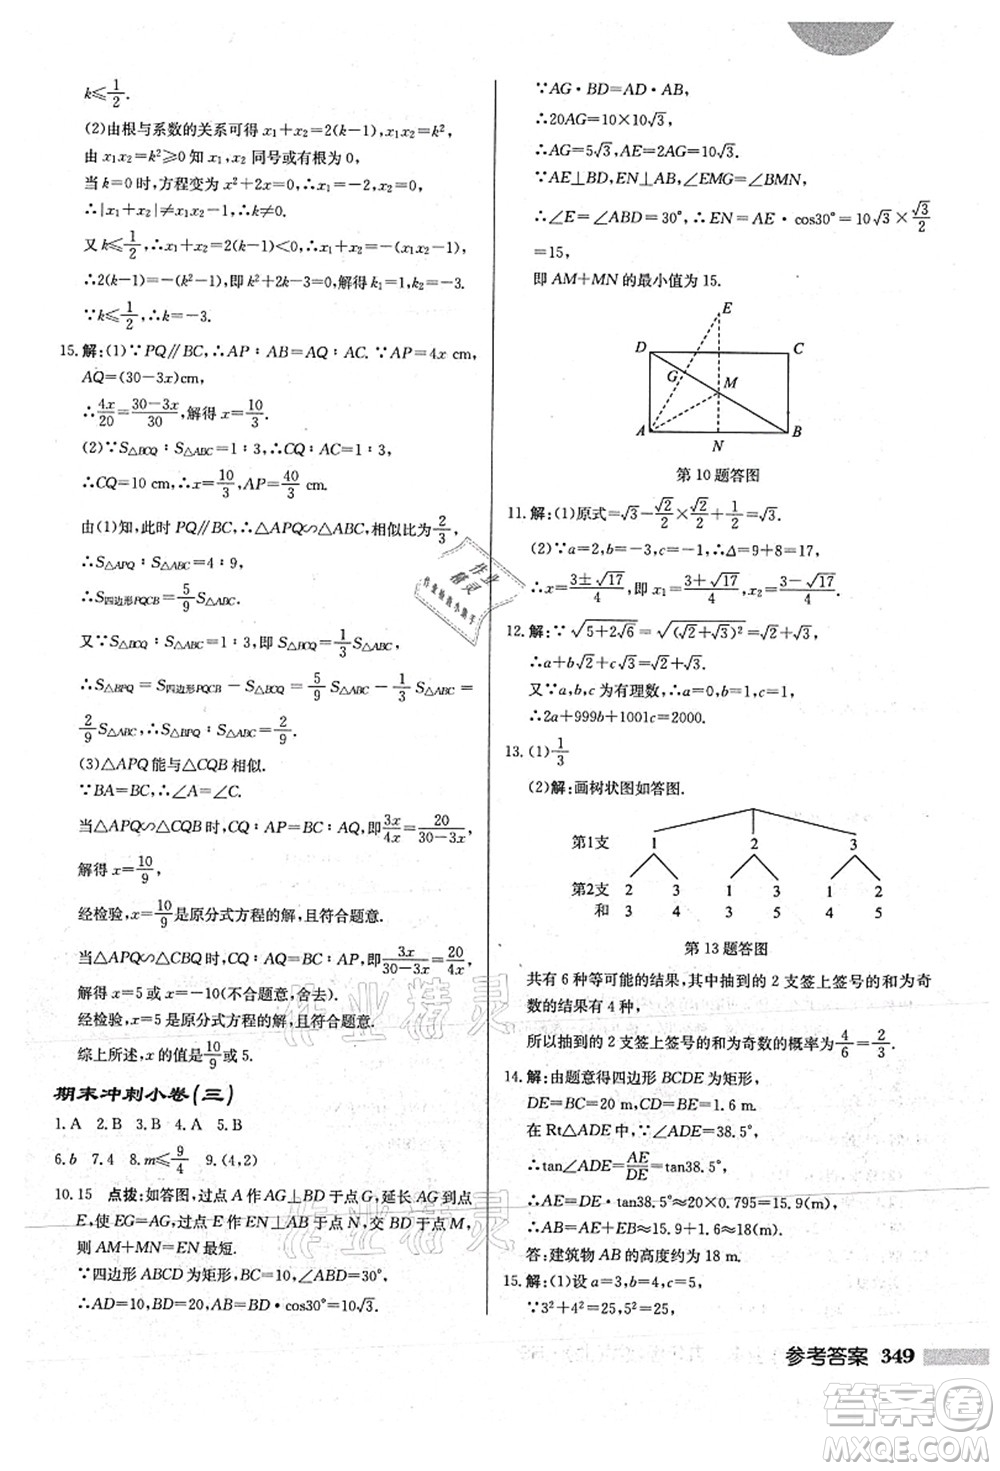 k≤1/2.
(2)由根与系数的关系可得 x₁+x₂=2(k-1),x₁x₂=k²,
由 x₁x₂=k²≥0 知 x₁,x₂ 同号或有根为 0,
当 k=0 时,方程变为 x²+2x=0,
∴|x₁+x₂|≠x₁x₂,∴k≠0.
又 k≤1/2,∴x₁+x₂=2(k-1)<0,∴x₁+x₂<0,
∴2(k-1)=-(k²-1),即 k²+2k-3=0,解得 k₁=1,k₂=-3.
∵k≤1/2,∴k=-3.
15.解:(1)∵PQ∥BC,∴AP∶AB=AQ∶AC.∵AP=4x cm,
AQ=(30-3x)cm,
∴4x/20=(30-3x)/30,解得 x=10/3.
(2)∵S△BCQ∶S△ABC=1∶3,∴CQ∶AC=1∶3,
∴CQ=10 cm,∴x=10/3,AP=40/3 cm.
由(1)知,此时 PQ∥BC,∴△APQ∽△ABC,相似比为2/3,
∴S△APQ∶S△ABC=4∶9,
∴S四边形PQCB=5/9S△ABC.
又∵S△BCQ∶S△ABC=1∶3,即 S△BCQ=1/3S△ABC,
∴S△BPQ=S四边形PQCB-S△BCQ=5/9S△ABC-1/3S△ABC=
2/9S△ABC,∴S△BPQ∶S△ABC=2/9.
(3)△APQ能与△CQB相似.
∵BA=BC,∴∠A=∠C.
当△APQ∽△CQB时,CQ∶AP=BC∶AQ,即3x/4x=20/(30-3x),
解得 x=10/9.
经检验,x=10/9是原分式方程的解,且符合题意.
当△APQ∽△CBQ时,CQ∶AQ=BC∶AP,即3x/(30-3x)=20/4x,
解得 x=5 或 x=-10(不合题意,舍去).
经检验,x=5 是原分式方程的解,且符合题意.
综上所述,x 的值是10/9或 5.
期末冲刺小卷(三)
1.A 2.B 3.B 4.A 5.B
6.b 7.4 8.m≤9/4 9.(4,2)
10.15 点拨:如答图,过点 A 作 AG⊥BD 于点 G,延长 AG 到点
E,使 EG=AG,过点 E 作 EN⊥AB 于点 N,交 BD 于点 M,
则 AM+MN=EN 最短.
∵四边形 ABCD 为矩形,BC=10,∠ABD=30°,
∴AD=10,BD=20,AB=BD·cos30°=10√3,
∵AG·BD=AD·AB,
∴20AG=10×10√3,
∴AG=5√3,AE=2AG=10√3.
∵AE⊥BD,EN⊥AB,∠EMG=∠BMN,
∴∠E=∠ABD=30°,∴EN=AE·cos30°=10√3×√3/2
=15,
即 AM+MN 的最小值为 15.
E
D C
G M
A N B
第 10 题答图
11.解:(1)原式=√3-√2/2×√2/2+1/2=√3.
(2)∵a=2,b=-3,c=-1,∴Δ=9+8=17,
∴x=(3±√17)/4,即 x₁=(3+√17)/4,x₂=(3-√17)/4.
12.解:∵√(5+2√6)=√((√2+√3)²)=√2+√3,
∴a+b√2+c√3=√2+√3.
又∵a,b,c 为有理数,∴a=0,b=1,c=1,
∴2a+999b+1001c=2000.
13.(1)1/3
(2)解:画树状图如答图.
第1支 1 2 3
第2支 2 3 1 3 1 2
和 3 4 3 5 4 5
第 13 题答图
共有 6 种等可能的结果,其中抽到的 2 支签上签号的和为奇
数的结果有 4 种,
所以抽到的 2 支签上签号的和为奇数的概率为4/6=2/3.
14.解:由题意得四边形 BCDE 为矩形,
DE=BC=20 m,BE=CD=1.6 m.
在 Rt△ADE 中,∠ADE=38.5°,
∴tan∠ADE=AE/DE,
∴AE=DE·tan38.5°≈20×0.795=15.9(m),
∴AB=AE+EB≈15.9+1.6≈18(m).
答:建筑物 AB 的高度约为 18 m.
15.解:(1)设 a=3,b=4,c=5,
∵3²+4²=25,5²=25,
参考答案 349
作业精灵
作业检查小帮手
作业精灵
作业精灵
答案圈
MXQE.COM